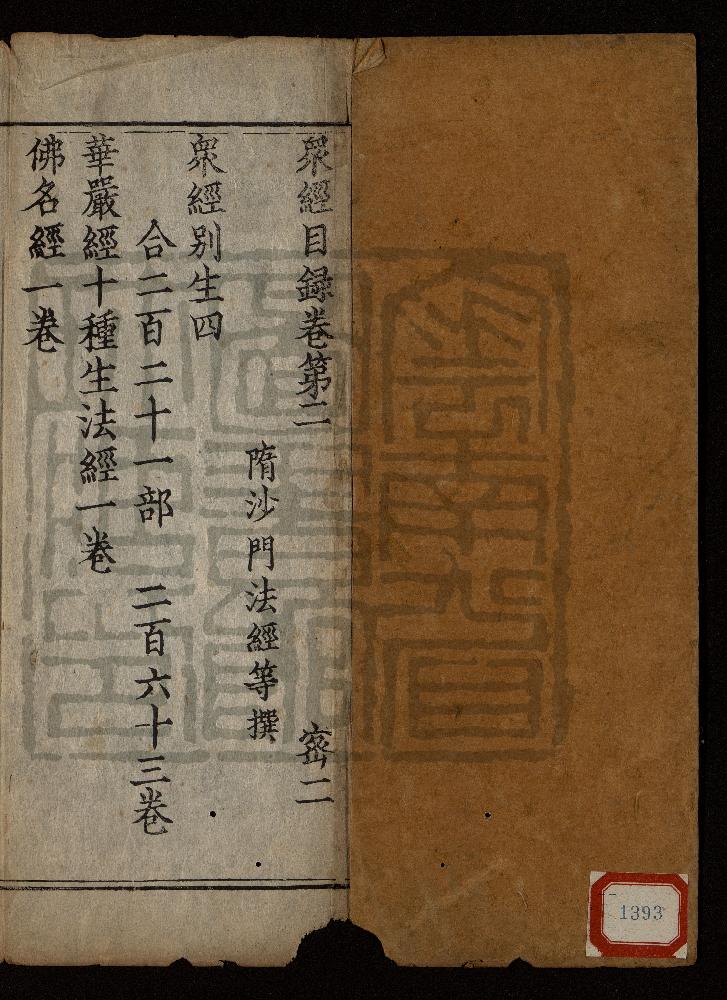 衆經目録卷第二 宻二
隋沙門法經等撰
衆經别生四
合二百二十一部 二百六十三卷
華嚴經十種生法經一卷
佛名經一卷
1393